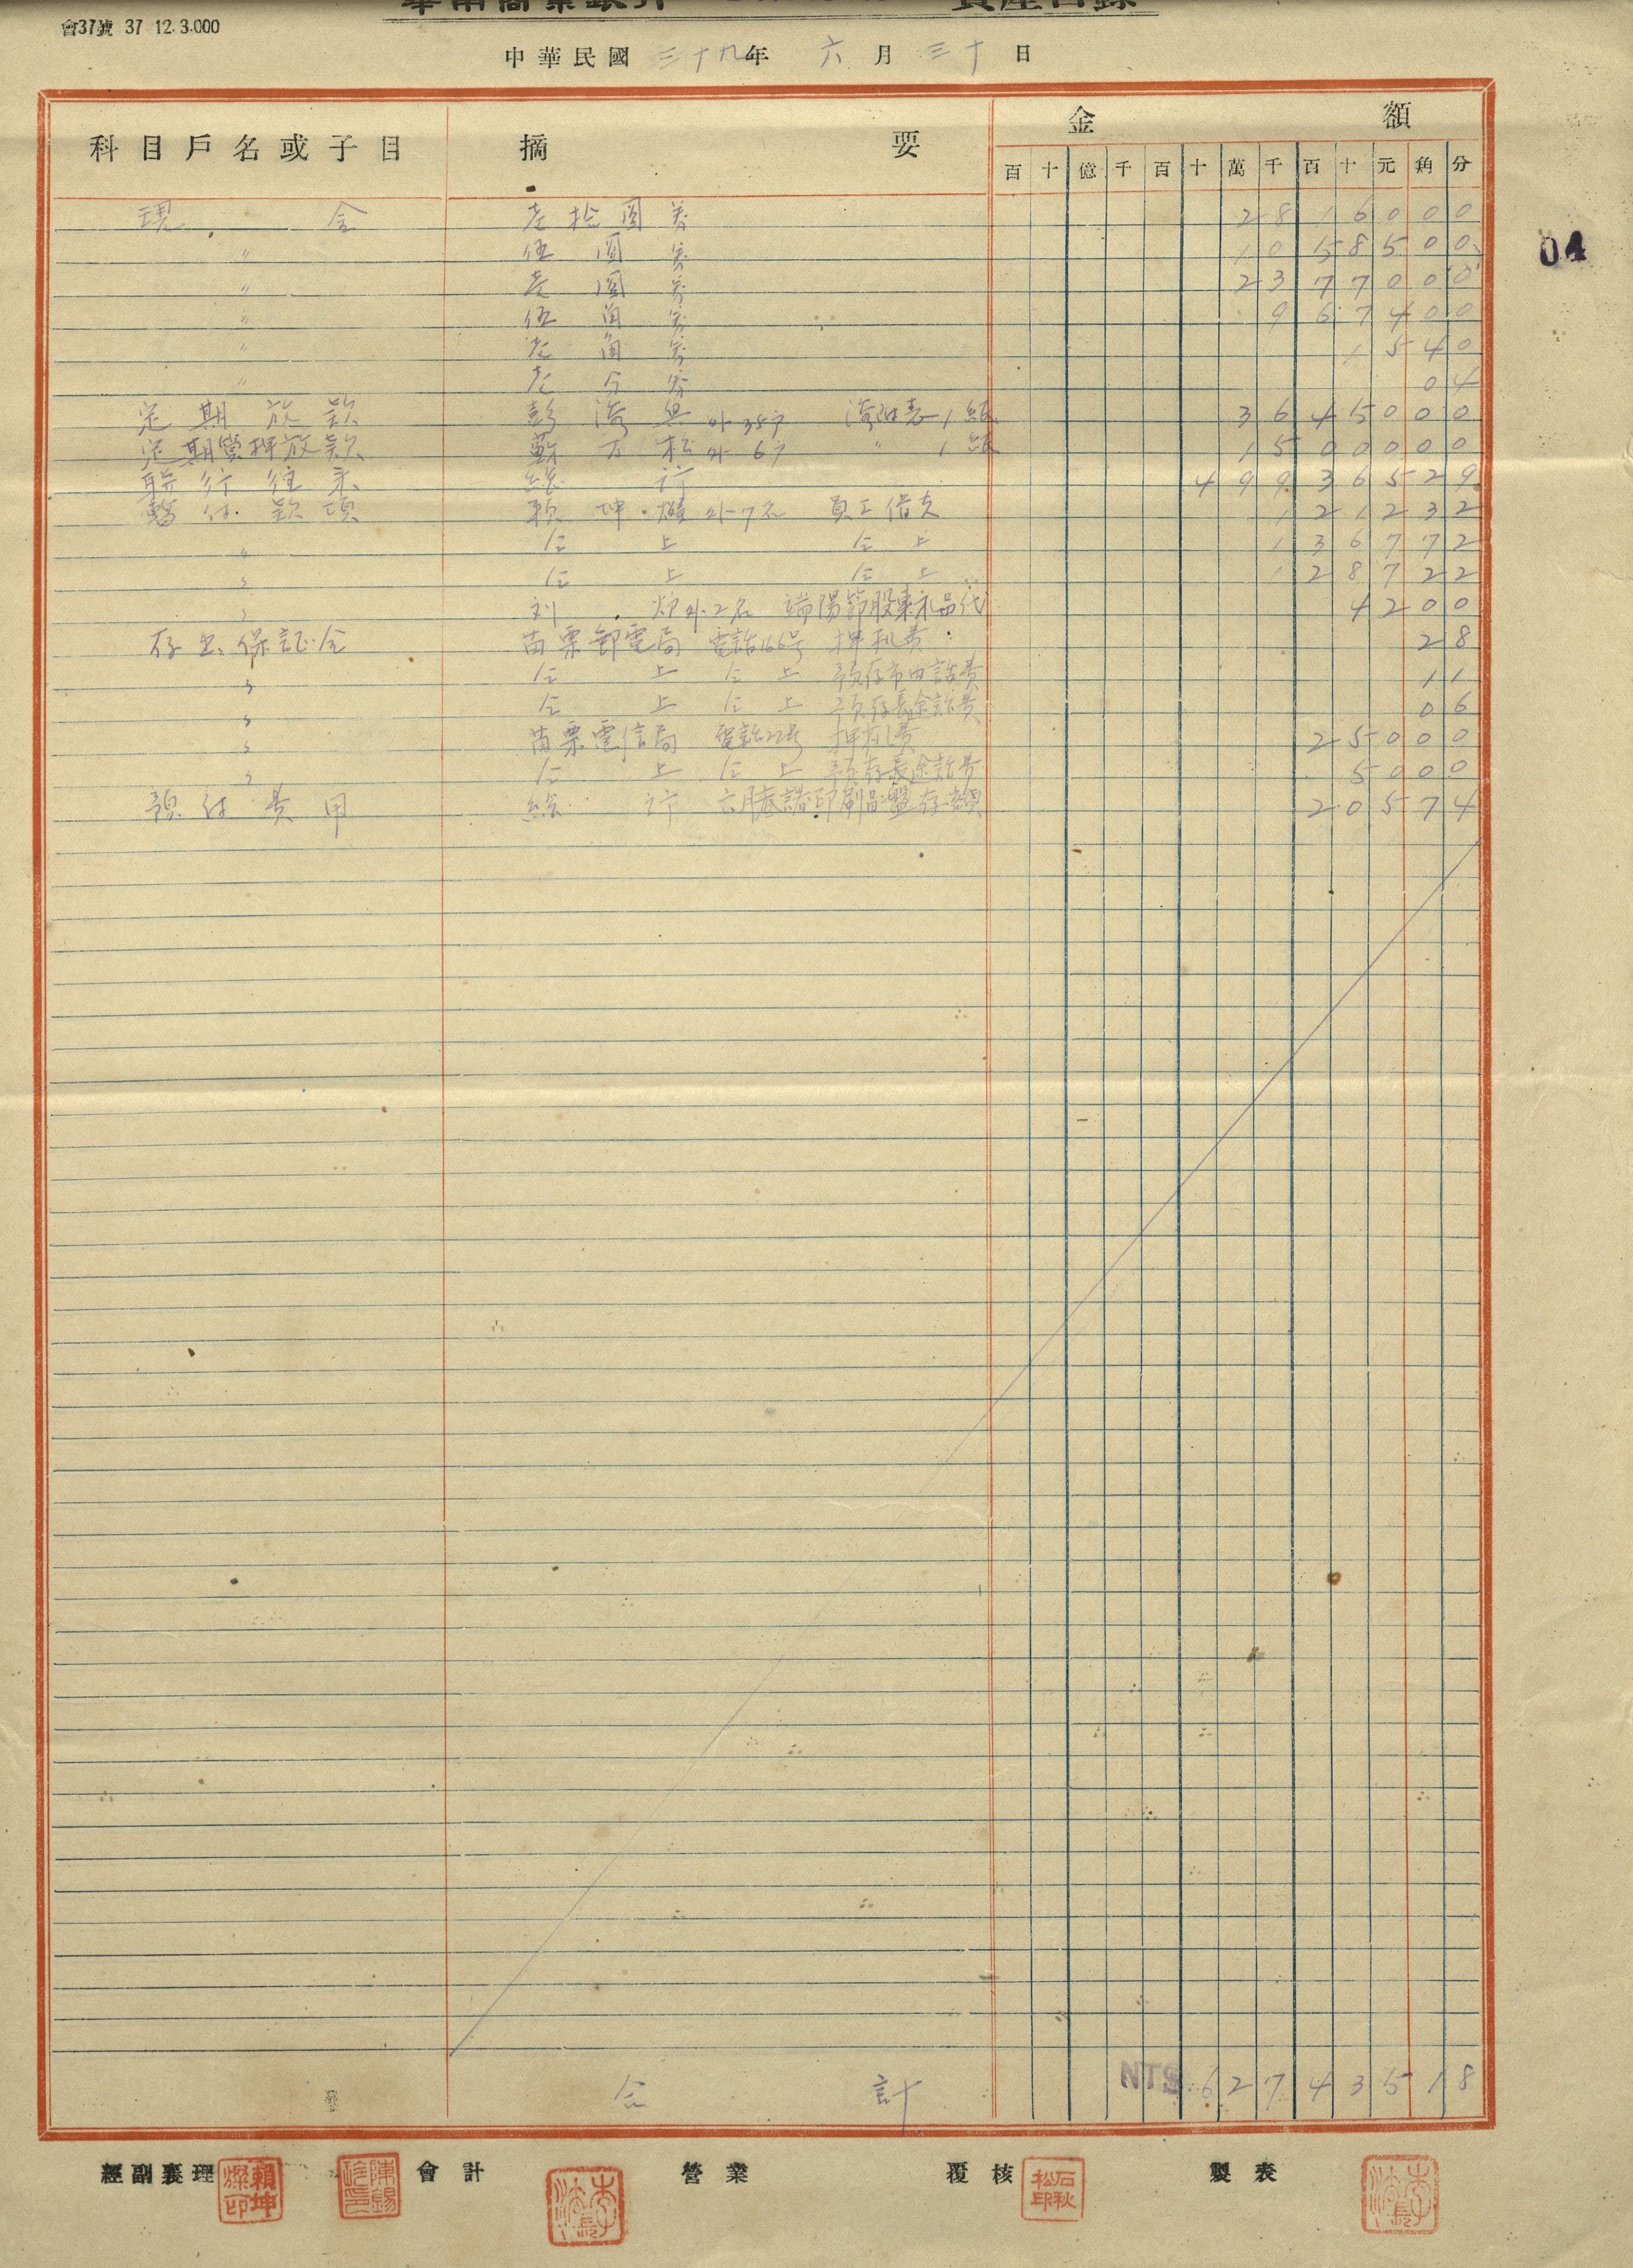 會37號 37.12.3.000
資產目錄
中華民國三十九年六月三十日
科目戶名或子目 摘要 金額
百十億千百十萬千百十元角分
現金 壱拾圓券 2816000
〃 伍圓券 1058500
〃 壱圓券 2377000
〃 伍角券 967400
〃 壱角券 1540
〃 壱分券 04
定期放款 彭 興外38戶 1紙 3645000
定期質押放款 蘇万松外6戶 〃 1紙 1500000
聯行往來 總行 49936529
暫付款項 賴坤燦外7名 員工借支 121232
〃 仝上 仝上 136772
〃 仝上 仝上 128722
〃 刘 外2名 端陽節股東礼品代 4200
存出保証金 苗栗郵電局 電話166号 押机費 28
〃 仝上 仝上 預存市內話費 11
〃 仝上 仝上 預存長途話費 06
〃 苗栗電信局 電話22号 押机費 25000
〃 仝上 仝上 預存長途話費 5000
預付費用 總行 六月底諸印刷品盤存額 20574
合計 NT$ 62743518
經副襄理 賴坤燦印 會計 營業 覆核 石秋松印 製表
04